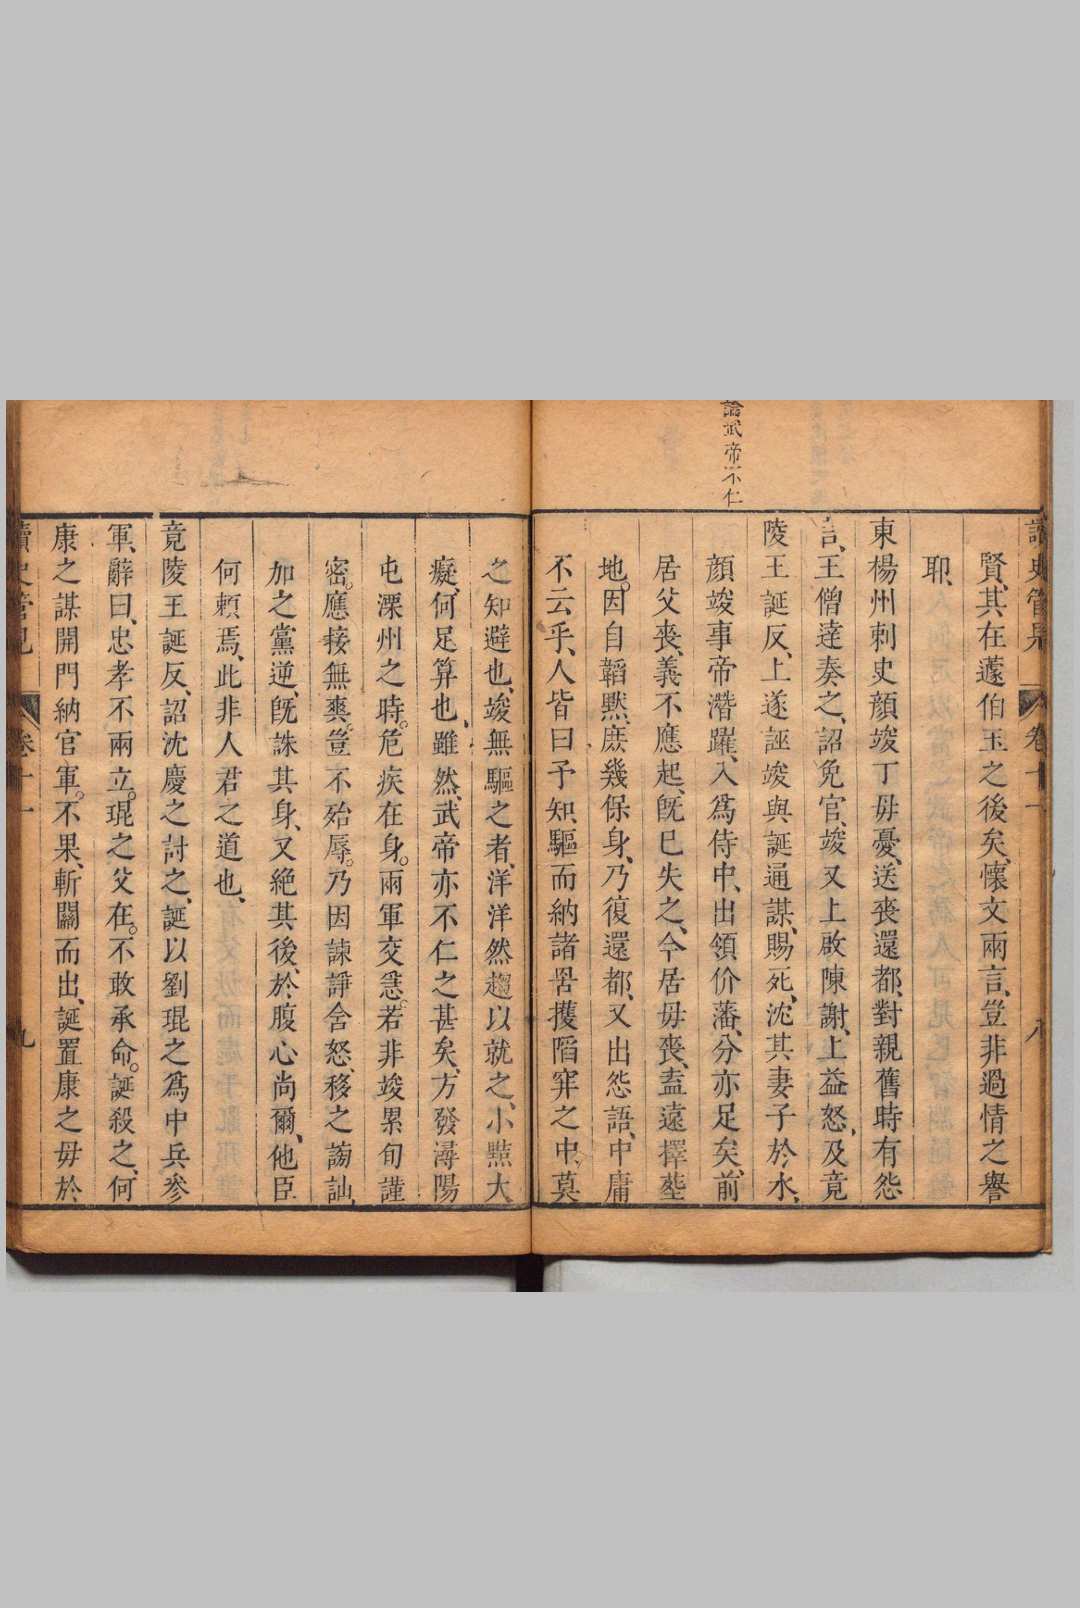 論武帝不仁
讀史管見 卷十一 八
賢、其在蘧伯玉之後矣、懷文兩言、豈非過情之譽
耶、
東楊州刺史顔竣丁毋憂、送喪還都、對親舊時有怨
言、王僧達奏之、詔免官、竣又上啟陳謝、上益怒、及竟
陵王誕反、上遂誣竣與誕通謀、賜死、沈其妻子於水、
顔竣事帝潛躍、入爲侍中、出領价藩、分亦足矣、前
居父喪、義不應起、旣已失之、今居毋喪、盍遠擇塋
地。因自韜黙、庶幾保身、乃復還都、又出怨語、中庸
不云乎、人皆曰予知、驅而納諸罟擭䧟穽之中、莫
之知避也、竣無驅之者、洋洋然趨以就之、小黠大
癡、何足算也、雖然、武帝亦不仁之甚矣、方發潯陽
屯溧州之時。危疾在身。兩軍交惎。若非竣累旬謹
密。應接無爽。豈不殆辱。乃因諫諍含怒、移之謭訕、
加之黨逆、旣誅其身、又絶其後、於腹心尚爾、他臣
何頼焉、此非人君之道也、
竟陵王誕反、詔沈慶之討之、誕以劉琨之爲中兵參
軍、辭曰、忠孝不兩立。琨之父在。不敢承命。誕殺之、何
康之謀開門納官軍。不果、斬關而出、誕置康之毋於
讀史管見 卷十一 九